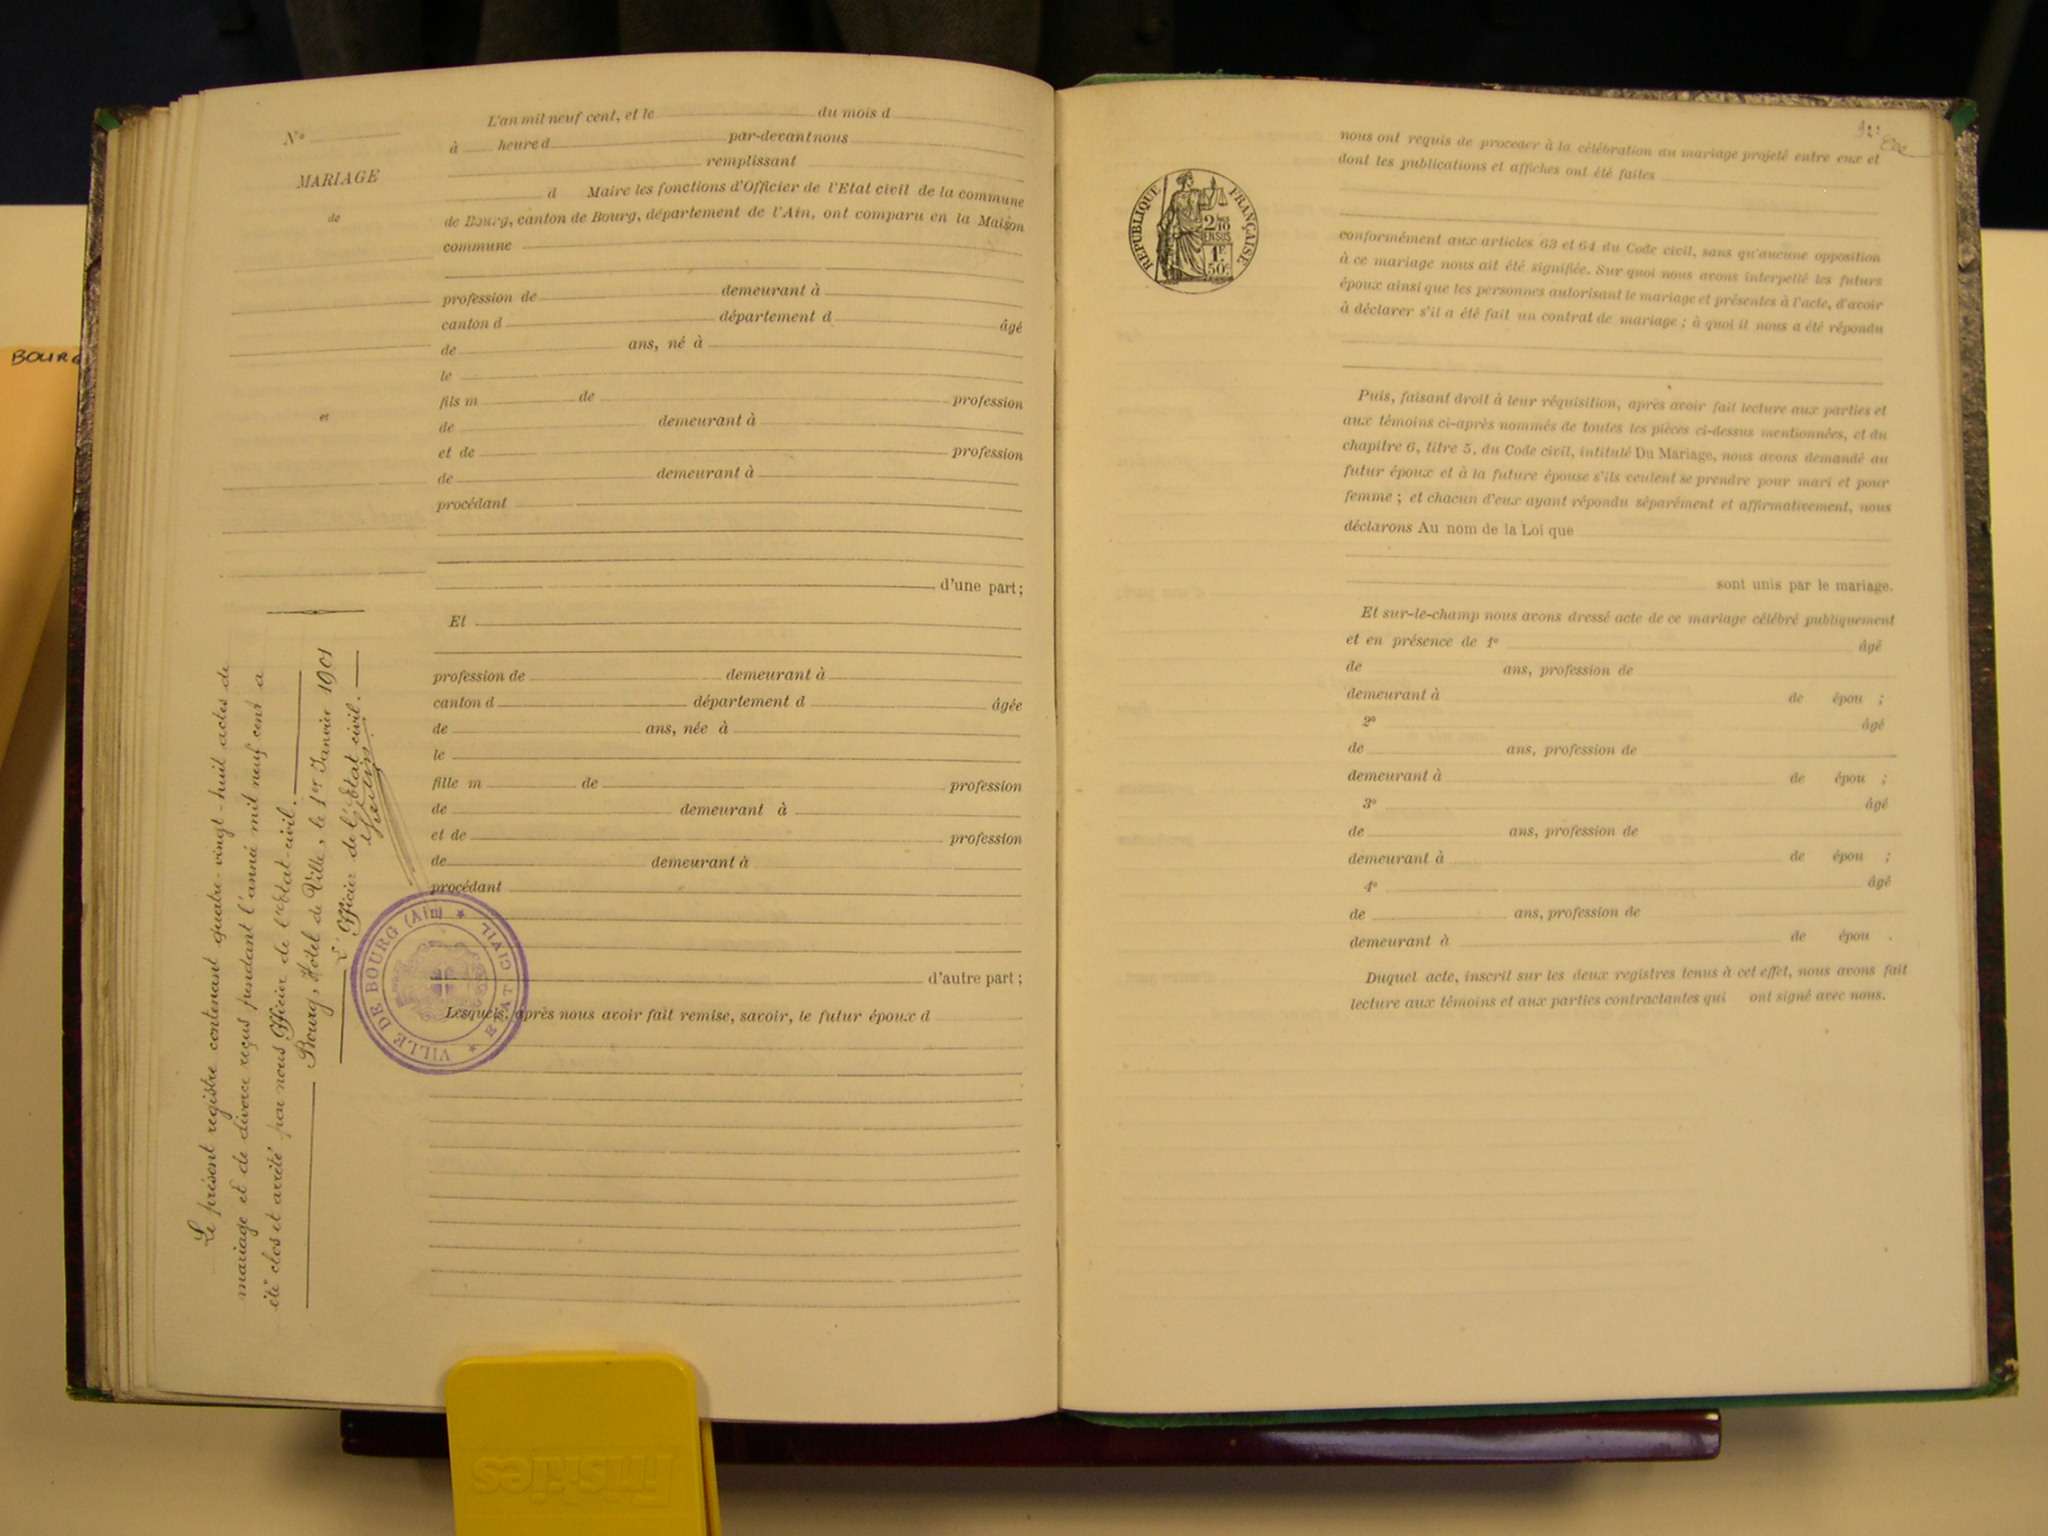 BOURG
Nº
MARIAGE
de
et
Le présent registre contenant quatre-vingt-huit actes de
mariage et de divorce reçus pendant l'année mil neuf cent a
été clos et arrêté par nous Officier de l'Etat-civil.
Bourg, Hôtel de Ville, le 1er Janvier 1901
L'Officier de l'Etat civil.
VILLE DE BOURG (Ain) ★ ETAT CIVIL ★
L'an mil neuf cent, et le du mois d
à heure d par-devant nous
remplissant
d Maire les fonctions d'Officier de l'Etat civil de la commune
de Bourg, canton de Bourg, département de l'Ain, ont comparu en la Maison
commune
profession de demeurant à
canton d département d âgé
de ans, né à
le
fils m de profession
de demeurant à
et de profession
de demeurant à
procédant
d'une part;
Et
profession de demeurant à
canton d département d âgée
de ans, née à
le
fille m de profession
de demeurant à
et de profession
de demeurant à
procédant
d'autre part;
Lesquels, après nous avoir fait remise, savoir, le futur époux d
RÉPUBLIQUE FRANÇAISE
2/10
EN SUS
1F
50c
nous ont requis de procéder à la célébration du mariage projeté entre eux et
dont les publications et affiches ont été faites
conformément aux articles 63 et 64 du Code civil, sans qu'aucune opposition
à ce mariage nous ait été signifiée. Sur quoi nous avons interpellé les futurs
époux ainsi que les personnes autorisant le mariage et présentes à l'acte, d'avoir
à déclarer s'il a été fait un contrat de mariage; à quoi il nous a été répondu
Puis, faisant droit à leur réquisition, après avoir fait lecture aux parties et
aux témoins ci-après nommés de toutes les pièces ci-dessus mentionnées, et du
chapitre 6, titre 5, du Code civil, intitulé Du Mariage, nous avons demandé au
futur époux et à la future épouse s'ils veulent se prendre pour mari et pour
femme; et chacun d'eux ayant répondu séparément et affirmativement, nous
déclarons Au nom de la Loi que
sont unis par le mariage.
Et sur-le-champ nous avons dressé acte de ce mariage célébré publiquement
et en présence de 1º âgé
de ans, profession de
demeurant à de épou ;
2º âgé
de ans, profession de
demeurant à de épou ;
3º âgé
de ans, profession de
demeurant à de épou ;
4º âgé
de ans, profession de
demeurant à de épou .
Duquel acte, inscrit sur les deux registres tenus à cet effet, nous avons fait
lecture aux témoins et aux parties contractantes qui ont signé avec nous.